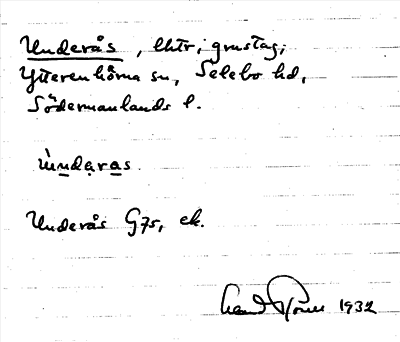 Underås, lhtr; grustag;
Ytterenhörna sn, Selebo hd,
Södermanlands l.
ùndaras.
Underås G75, ek.
1932